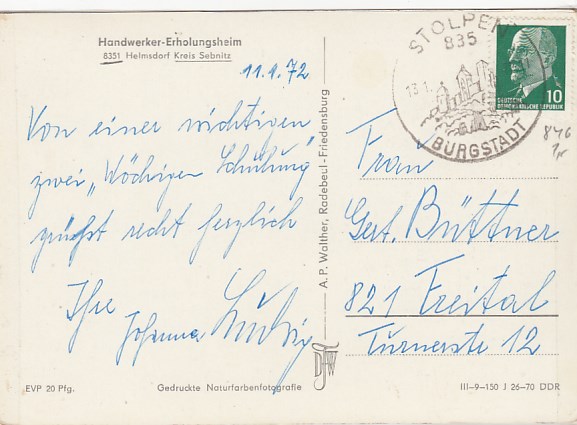 Handwerker-Erholungsheim
8351 Helmsdorf Kreis Sebnitz
11.1.72
Von einer wichtigen
zwei „Wöchigen Schulung"
grüßt recht herzlich
Ihre
Johanna Ludwig
EVP 20 Pfg.
Gedruckte Naturfarbenfotografie
A. P. Walther, Radebeul-Friedensburg
STOLPEN
835
13.1.
BURGSTADT
DEUTSCHE
DEMOKRATISCHE REPUBLIK
10
846
Frau
Gert. Büttner
821 Freital
Turnerstr 12
III-9-150 J 26-70 DDR